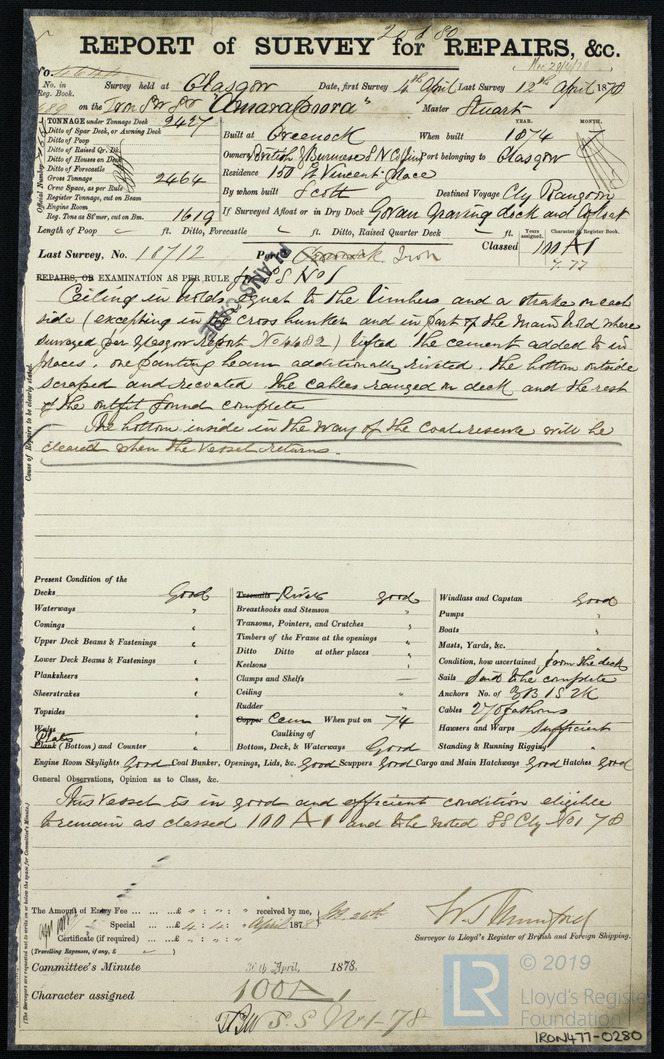 REPORT of SURVEY for REPAIRS, &c.
No. in Reg. Book. Survey held at Glasgow Date, first Survey 4th April Last Survey 12th April 1878
on the Iron Sw Sr "Amarapoora" Master Stuart
TONNAGE under Tonnage Deck 2427
Ditto of Spar Deck, or Awning Deck
Ditto of Poop
Ditto of Raised Qr. Dk.
Ditto of Houses on Deck
Ditto of Forecastle
Gross Tonnage 2464
Crew Space, as per Rule
Register Tonnage, cut on Beam
Engine Room
Reg. Tons as St'mer, cut on Bm. 1619
Official Number
YEAR. MONTH.
Built at Greenock When built 1874 7
Owners British & Burmese S N Co Lim Port belonging to Glasgow
Residence 150 St Vincent Place
By whom built Scott Destined Voyage Cly Rangoon
If Surveyed Afloat or in Dry Dock Govan Graving dock and afloat
Length of Poop ft. Ditto, Forecastle ft. Ditto, Raised Quarter Deck ft.
Years assigned. Character in Register Book.
Last Survey, No. 18712 Port Greenock Iron Classed 100 A1
7.77
PLANS CASE
REPAIRS, OR EXAMINATION AS PER RULE for S S No 1
Ceiling in holds equal to the limbers and a strake on each
side (excepting in the cross bunker and in part of the main hold where
surveyed per Glasgow Report No 4682) lifted. The cement added to in
places, one panting beam additionally riveted. The bottom outside
scraped and recoated. The cables ranged on deck and the rest
of the outfit found complete
The bottom inside in the way of the coal reserve will be
cleared when the vessel returns.
Cause of Repairs to be clearly stated.
Present Condition of the
Decks Good
Waterways "
Comings "
Upper Deck Beams & Fastenings "
Lower Deck Beams & Fastenings "
Planksheers "
Sheerstrakes "
Topsides "
Wales "
Plates
Plank (Bottom) and Counter "
Treenails Rivets good
Breasthooks and Stemson "
Transoms, Pointers, and Crutches "
Timbers of the Frame at the openings "
Ditto Ditto at other places "
Keelsons "
Clamps and Shelfs —
Ceiling "
Rudder "
Copper Cem When put on 74
Caulking of
Bottom, Deck, & Waterways Good
Windlass and Capstan Good
Pumps "
Boats "
Masts, Yards, &c. "
Condition, how ascertained from the deck
Sails said to be complete
Anchors No. of 3B 1S 2K
Cables 270 fathoms
Hawsers and Warps Sufficient
Standing & Running Rigging "
Engine Room Skylights Good Coal Bunker, Openings, Lids, &c. Good Scuppers Good Cargo and Main Hatchways Good Hatches Good
General Observations, Opinion as to Class, &c.
This vessel is in good and efficient condition eligible
to remain as classed 100 A1 and to be noted SS Cly No 1 78
(The Surveyors are requested not to write on or below the space for Committee's Minute.)
The Amount of Entry Fee ... ... £ " : " : " received by me,
Special ... ... £ 4 : 4 : " April 1878
Certificate (if required) ... £ " : " : "
(Travelling Expenses, if any, £ )
Surveyor to Lloyd's Register of British and Foreign Shipping.
Committee's Minute 30th April, 1878.
Character assigned 100A1
S.S No 1-78
LR
© 2019
Lloyd's Register
Foundation
IRON477-0280